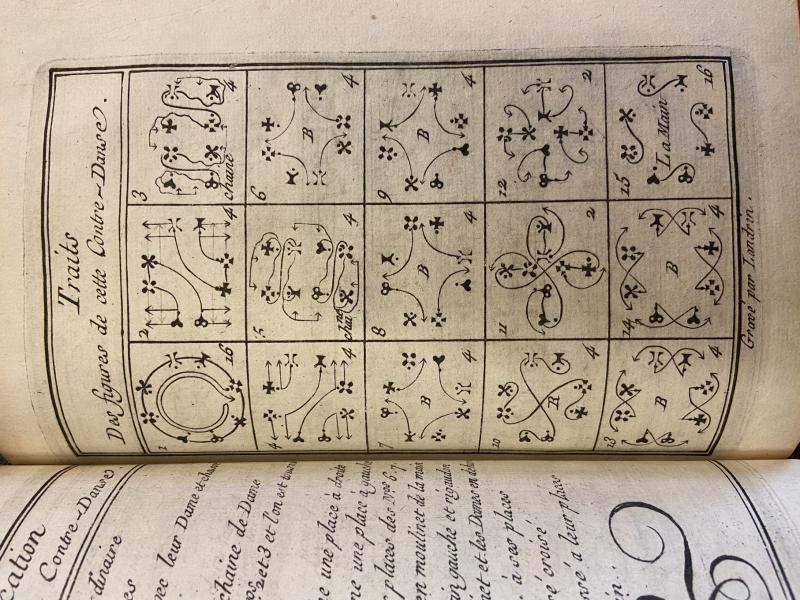 Traits
Des figures de cette Contre-Danse.
1
16
2
4
3
chaine
4
4
4
5
chaine
4
6
B
4
7
B
4
8
B
4
9
B
4
10
B
4
11
2
12
2
13
B
4
14
B
4
15
La Main
16
Gravé par Landrin.
cation
Contre-Danse.
dinaire
vec leur Dame et
chaine de Dame
2 et 3 et l'on est
e une place à droite
me une place à gauche
places des Nos 6. 7.
en moulinet de la main
main gauche et rigaudon
net et les Dames en
à ses places
ré croisé
ve à leur place